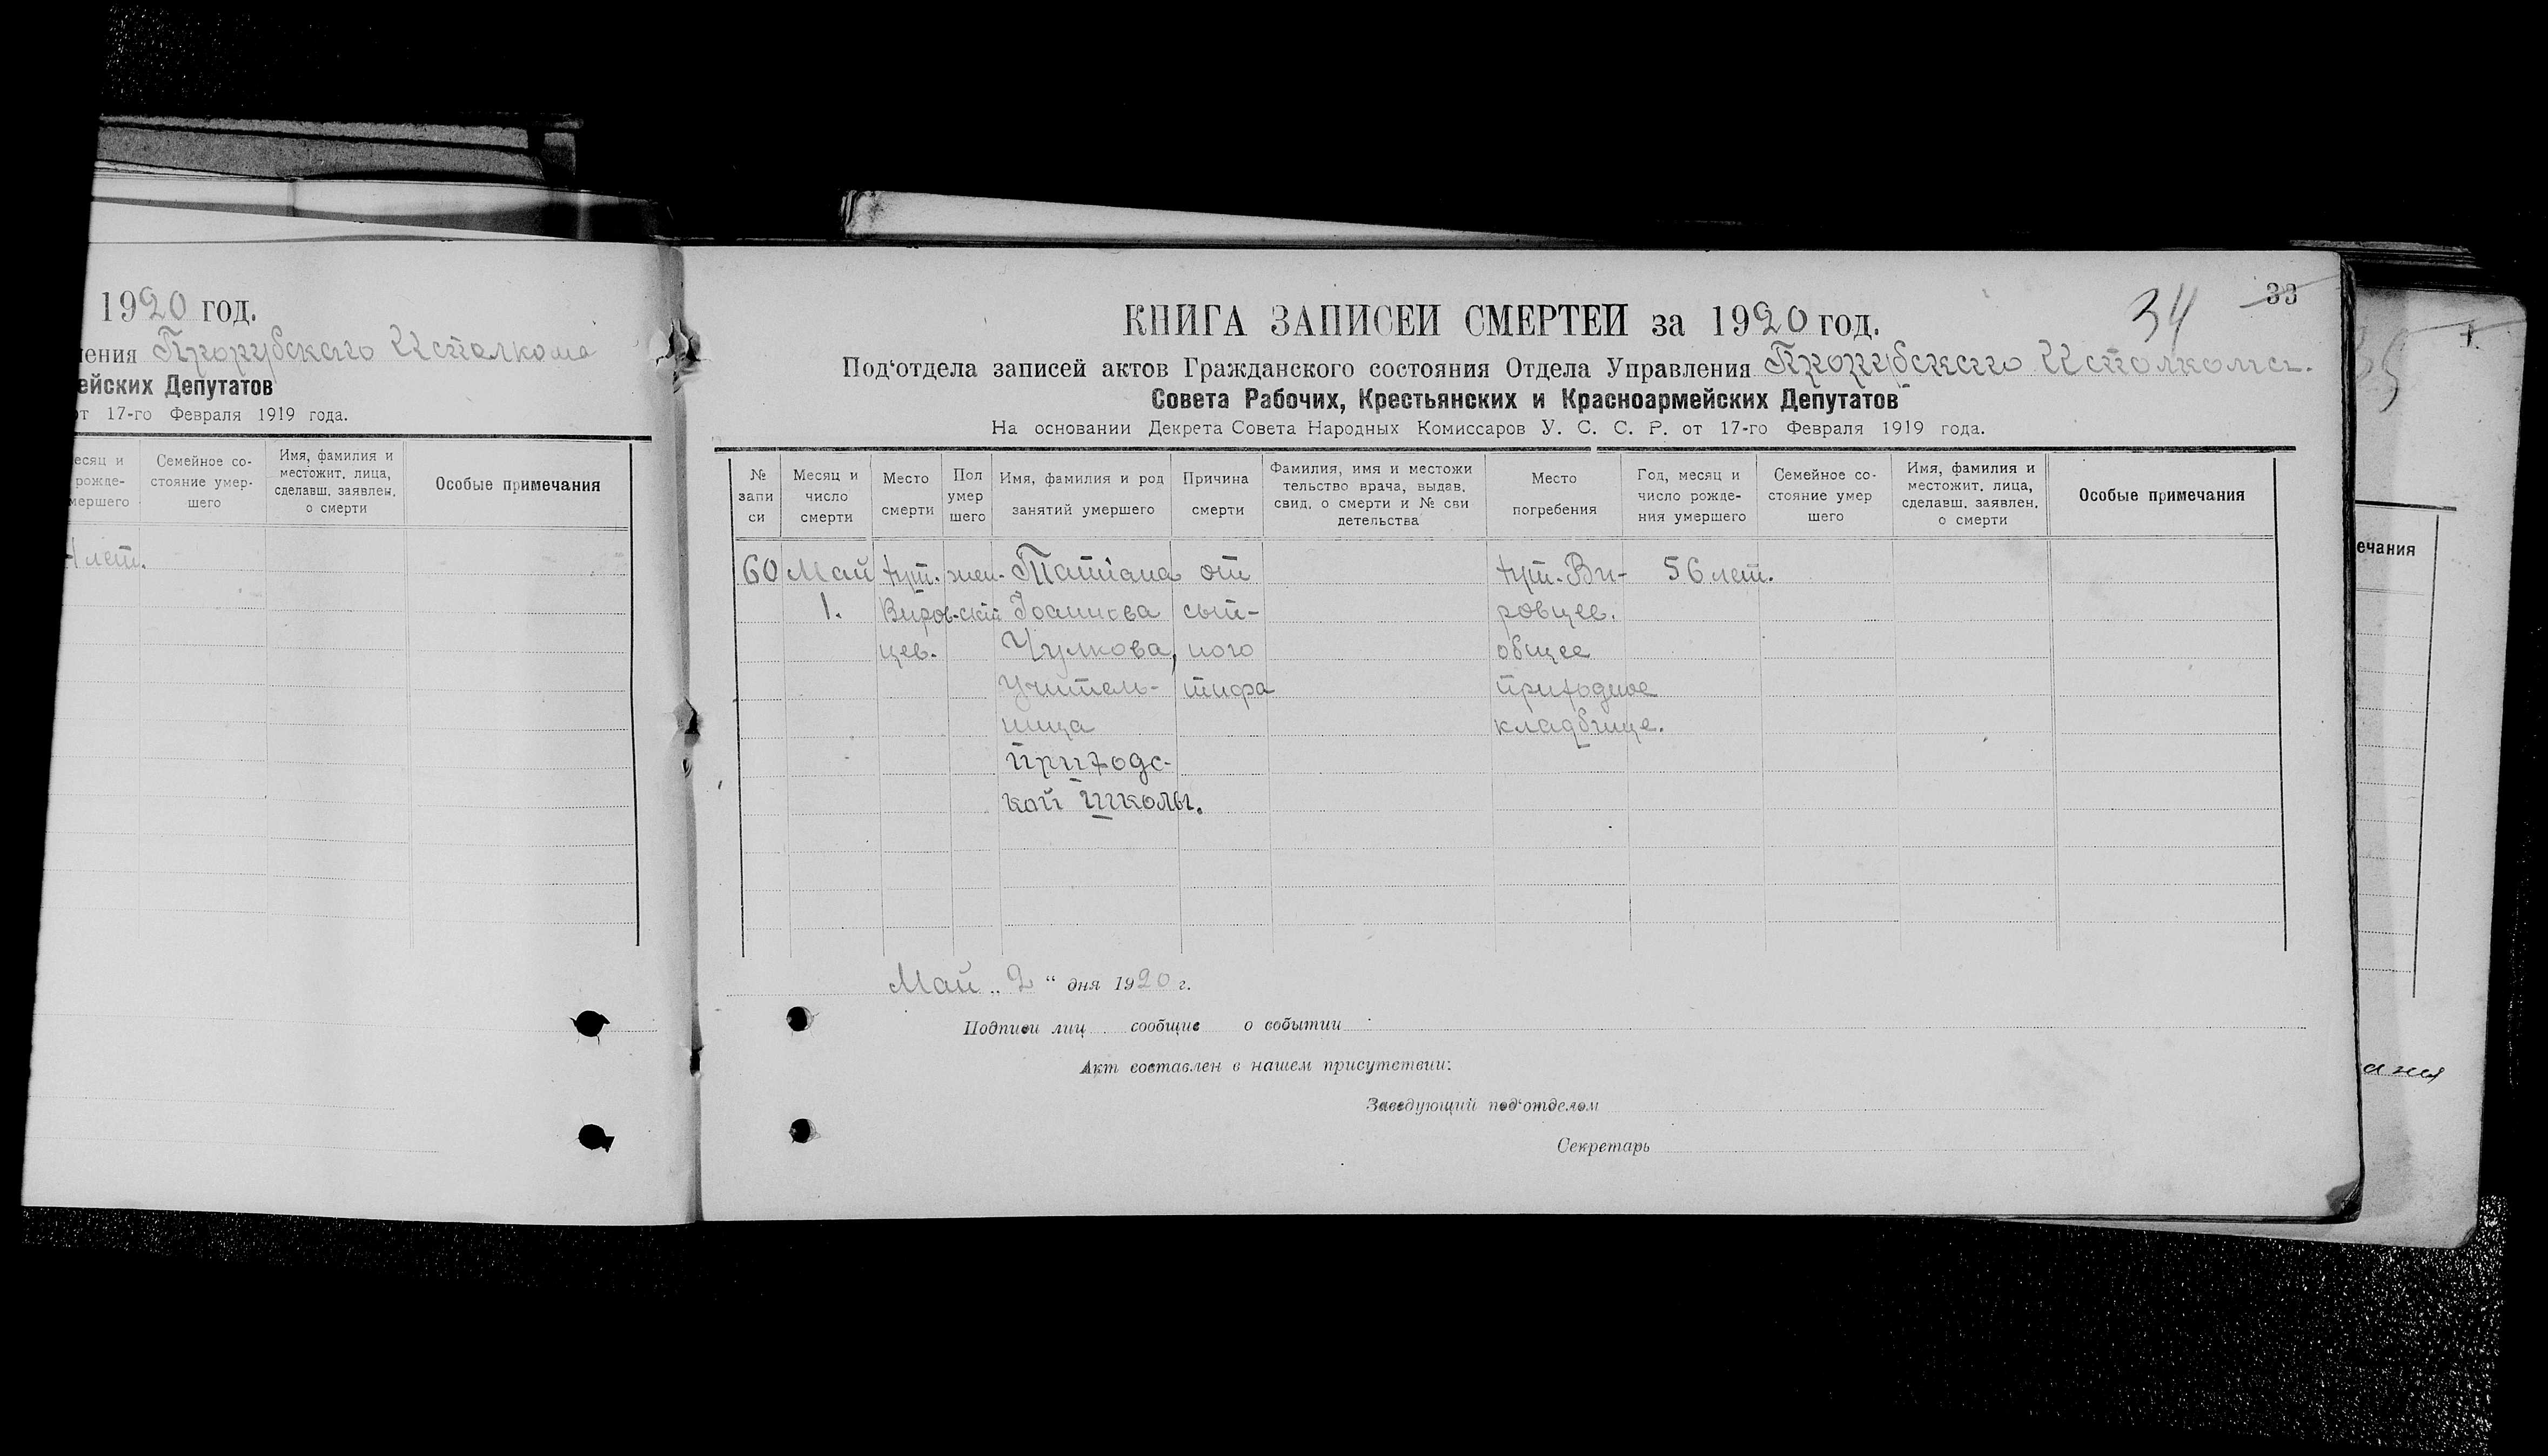 1920 год.
ления Прорубского Исполкома
ейских Депутатов
от 17-го Февраля 1919 года.
есяц и
рожде-
мершего
Семейное со-
стояние умер-
шего
Имя, фамилия и
местожит. лица,
сделавш. заявлен.
о смерти
Особые примечания
лет.
33
34
КНИГА ЗАПИСЕЙ СМЕРТЕЙ за 1920 год.
Под‘отдела записей актов Гражданского состояния Отдела Управления Прорубского Исполкома.
Совета Рабочих, Крестьянских и Красноармейских Депутатов
На основании Декрета Совета Народных Комиссаров У. С. С. Р. от 17-го Февраля 1919 года.
№
запи
си
Месяц и
число
смерти
Место
смерти
Пол
умер
шего
Имя, фамилия и род
занятий умершего
Причина
смерти
Фамилия, имя и местожи
тельство врача, выдав.
свид. о смерти и № сви
детельства
Место
погребения
Год, месяц и
число рожде-
ния умершего
Семейное со-
стояние умер
шего
Имя, фамилия и
местожит. лица,
сделавш. заявлен.
о смерти
Особые примечания
60
Май
1.
хут.
Виров-
цев.
жен-
ский
Татiана
Iоаннова
Чулкова,
учитель-
ница
приходс-
кой школы.
от
сып-
ного
тифа
хут. Ви-
ровцев.
общее
приходное
кладбище.
56 лет.
Май „ 2 “ дня 1920 г.
Подписи лиц сообщив о событии
Акт составлен в нашем присутствии:
Заведующий под‘отделом
Секретарь
35
ечания